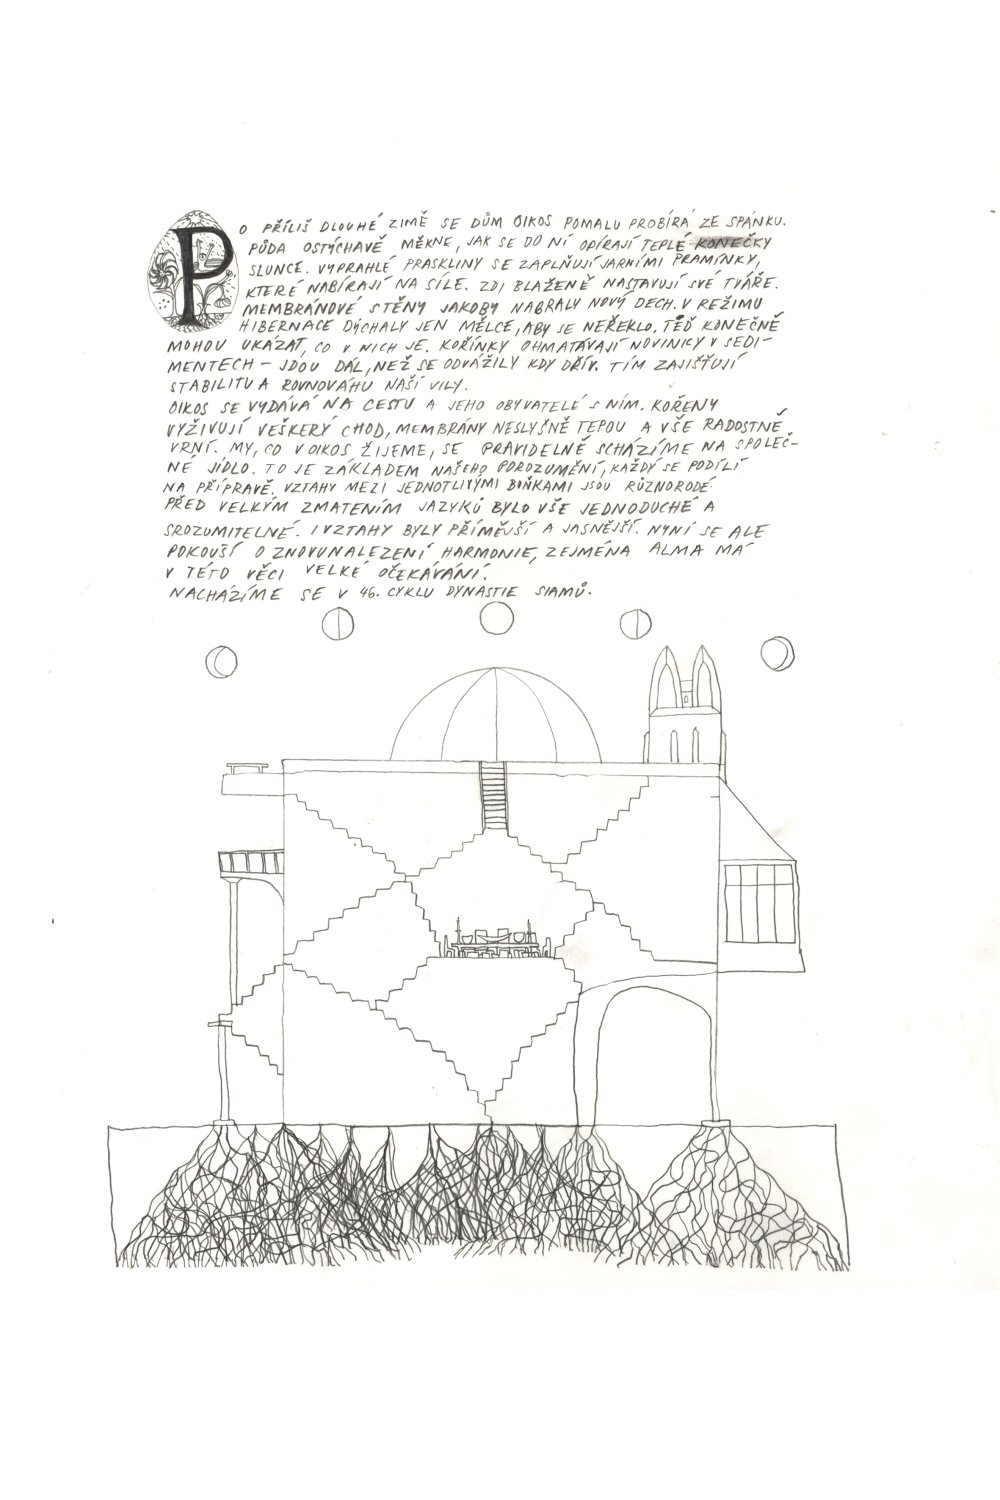 PO PŘÍLIŠ DLOUHÉ ZIMĚ SE DŮM OIKOS POMALU PROBÍRÁ ZE SPÁNKU.
PŮDA OSTÝCHAVĚ MĚKNE, JAK SE DO NÍ OPÍRAJÍ TEPLÉ KONEČKY
SLUNCE. VYPRAHLÉ PRASKLINY SE ZAPLŇUJÍ JARNÍMI PRAMÍNKY,
KTERÉ NABÍRAJÍ NA SÍLE. ZDI BLAŽENĚ NASTAVUJÍ SVÉ TVÁŘE.
MEMBRÁNOVÉ STĚNY JAKOBY NABRALY NOVÝ DECH. V REŽIMU
HIBERNACE DÝCHALY JEN MĚLCE, ABY SE NEŘEKLO. TEĎ KONEČNĚ
MOHOU UKÁZAT, CO V NICH JE. KOŘÍNKY OHMATÁVAJÍ NOVINKY V SEDI-
MENTECH – JDOU DÁL, NEŽ SE ODVÁŽILY KDY DŘÍV. TÍM ZAJIŠŤUJÍ
STABILITU A ROVNOVÁHU NAŠÍ VILY.
OIKOS SE VYDÁVÁ NA CESTU A JEHO OBYVATELÉ S NÍM. KOŘENY
VYŽIVUJÍ VEŠKERÝ CHOD, MEMBRÁNY NESLYŠNĚ TEPOU A VŠE RADOSTNĚ
VRNÍ. MY, CO V OIKOS ŽIJEME, SE PRAVIDELNĚ SCHÁZÍME NA SPOLEČ-
NÉ JÍDLO. TO JE ZÁKLADEM NAŠEHO POROZUMĚNÍ, KAŽDÝ SE PODÍLÍ
NA PŘÍPRAVĚ. VZTAHY MEZI JEDNOTLIVÝMI BUŇKAMI JSOU RŮZNORODÉ
PŘED VELKÝM ZMATENÍM JAZYKŮ BYLO VŠE JEDNODUCHÉ A
SROZUMITELNÉ. I VZTAHY BYLY PŘÍMĚJŠÍ A JASNĚJŠÍ. NYNÍ SE ALE
POKOUŠÍ O ZNOVUNALEZENÍ HARMONIE, ZEJMÉNA ALMA MÁ
V TÉTO VĚCI VELKÉ OČEKÁVÁNÍ.
NACHÁZÍME SE V 46. CYKLU DYNASTIE SIAMŮ.